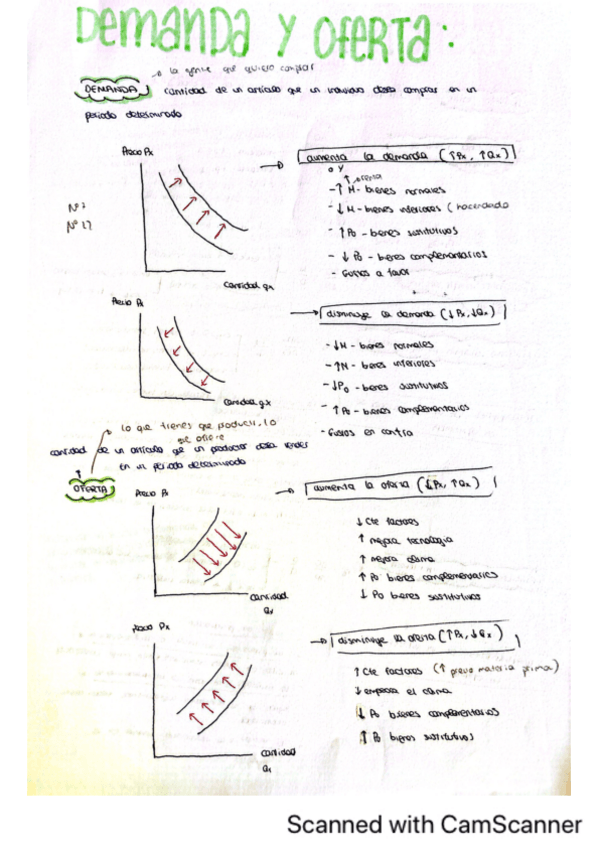 DEMANDA Y OFERTA:
la gente que quiero comprar
DEMANDA cantidad de un artículo que un individuo desea comprar en un
periodo determinado
Precio Px
aumenta la demanda (↑Px, ↑Qx)
o Y
↑ renta
-↑ M- bienes normales
-↓ M- bienes inferiores (hacendado
- ↑ Pb - bienes sustitutivos
- ↓ Pb - bienes complementarios
- Gustos a favor
Nº 7
Nº 17
Cantidad qx
Precio Px
disminuye la demanda (↓Px,↓Qx)
-↓M- bienes normales
-↑M- bienes inferiores
-↓Pb - bienes sustitutivos
- ↑ Pb - bienes complementarios
-Gustos en contra
Cantidad qx
lo que tienes que producir, lo
que ofrece
cantidad de un artículo que un productor desea vender
en un periodo determinado
OFERTA
Precio Px
aumenta la oferta (↓Px, ↑Qx)
↓ Cte factores
↑ mejora tecnología
↑ mejora clima
↑ Pb bienes complementarios
↓ Pb bienes sustitutivos
Cantidad
Precio Px
disminuye la oferta (↑Px, ↓Qx)
↑ Cte factores (↑ precio materia prima)
↓ empeora el clima
↓ Pb bienes complementarios
↑ Pb bienes sustitutivos
cantidad
Scanned with CamScanner